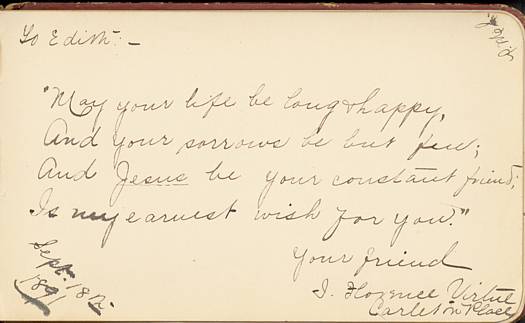 To Edith:—
"May your life be long & happy,
And your sorrows be but few;
And Jesus be your constant friend;
Is my earnest wish for you."
Your friend
I. Florence Virtue
Carleton Place
Sept. 18th
1891